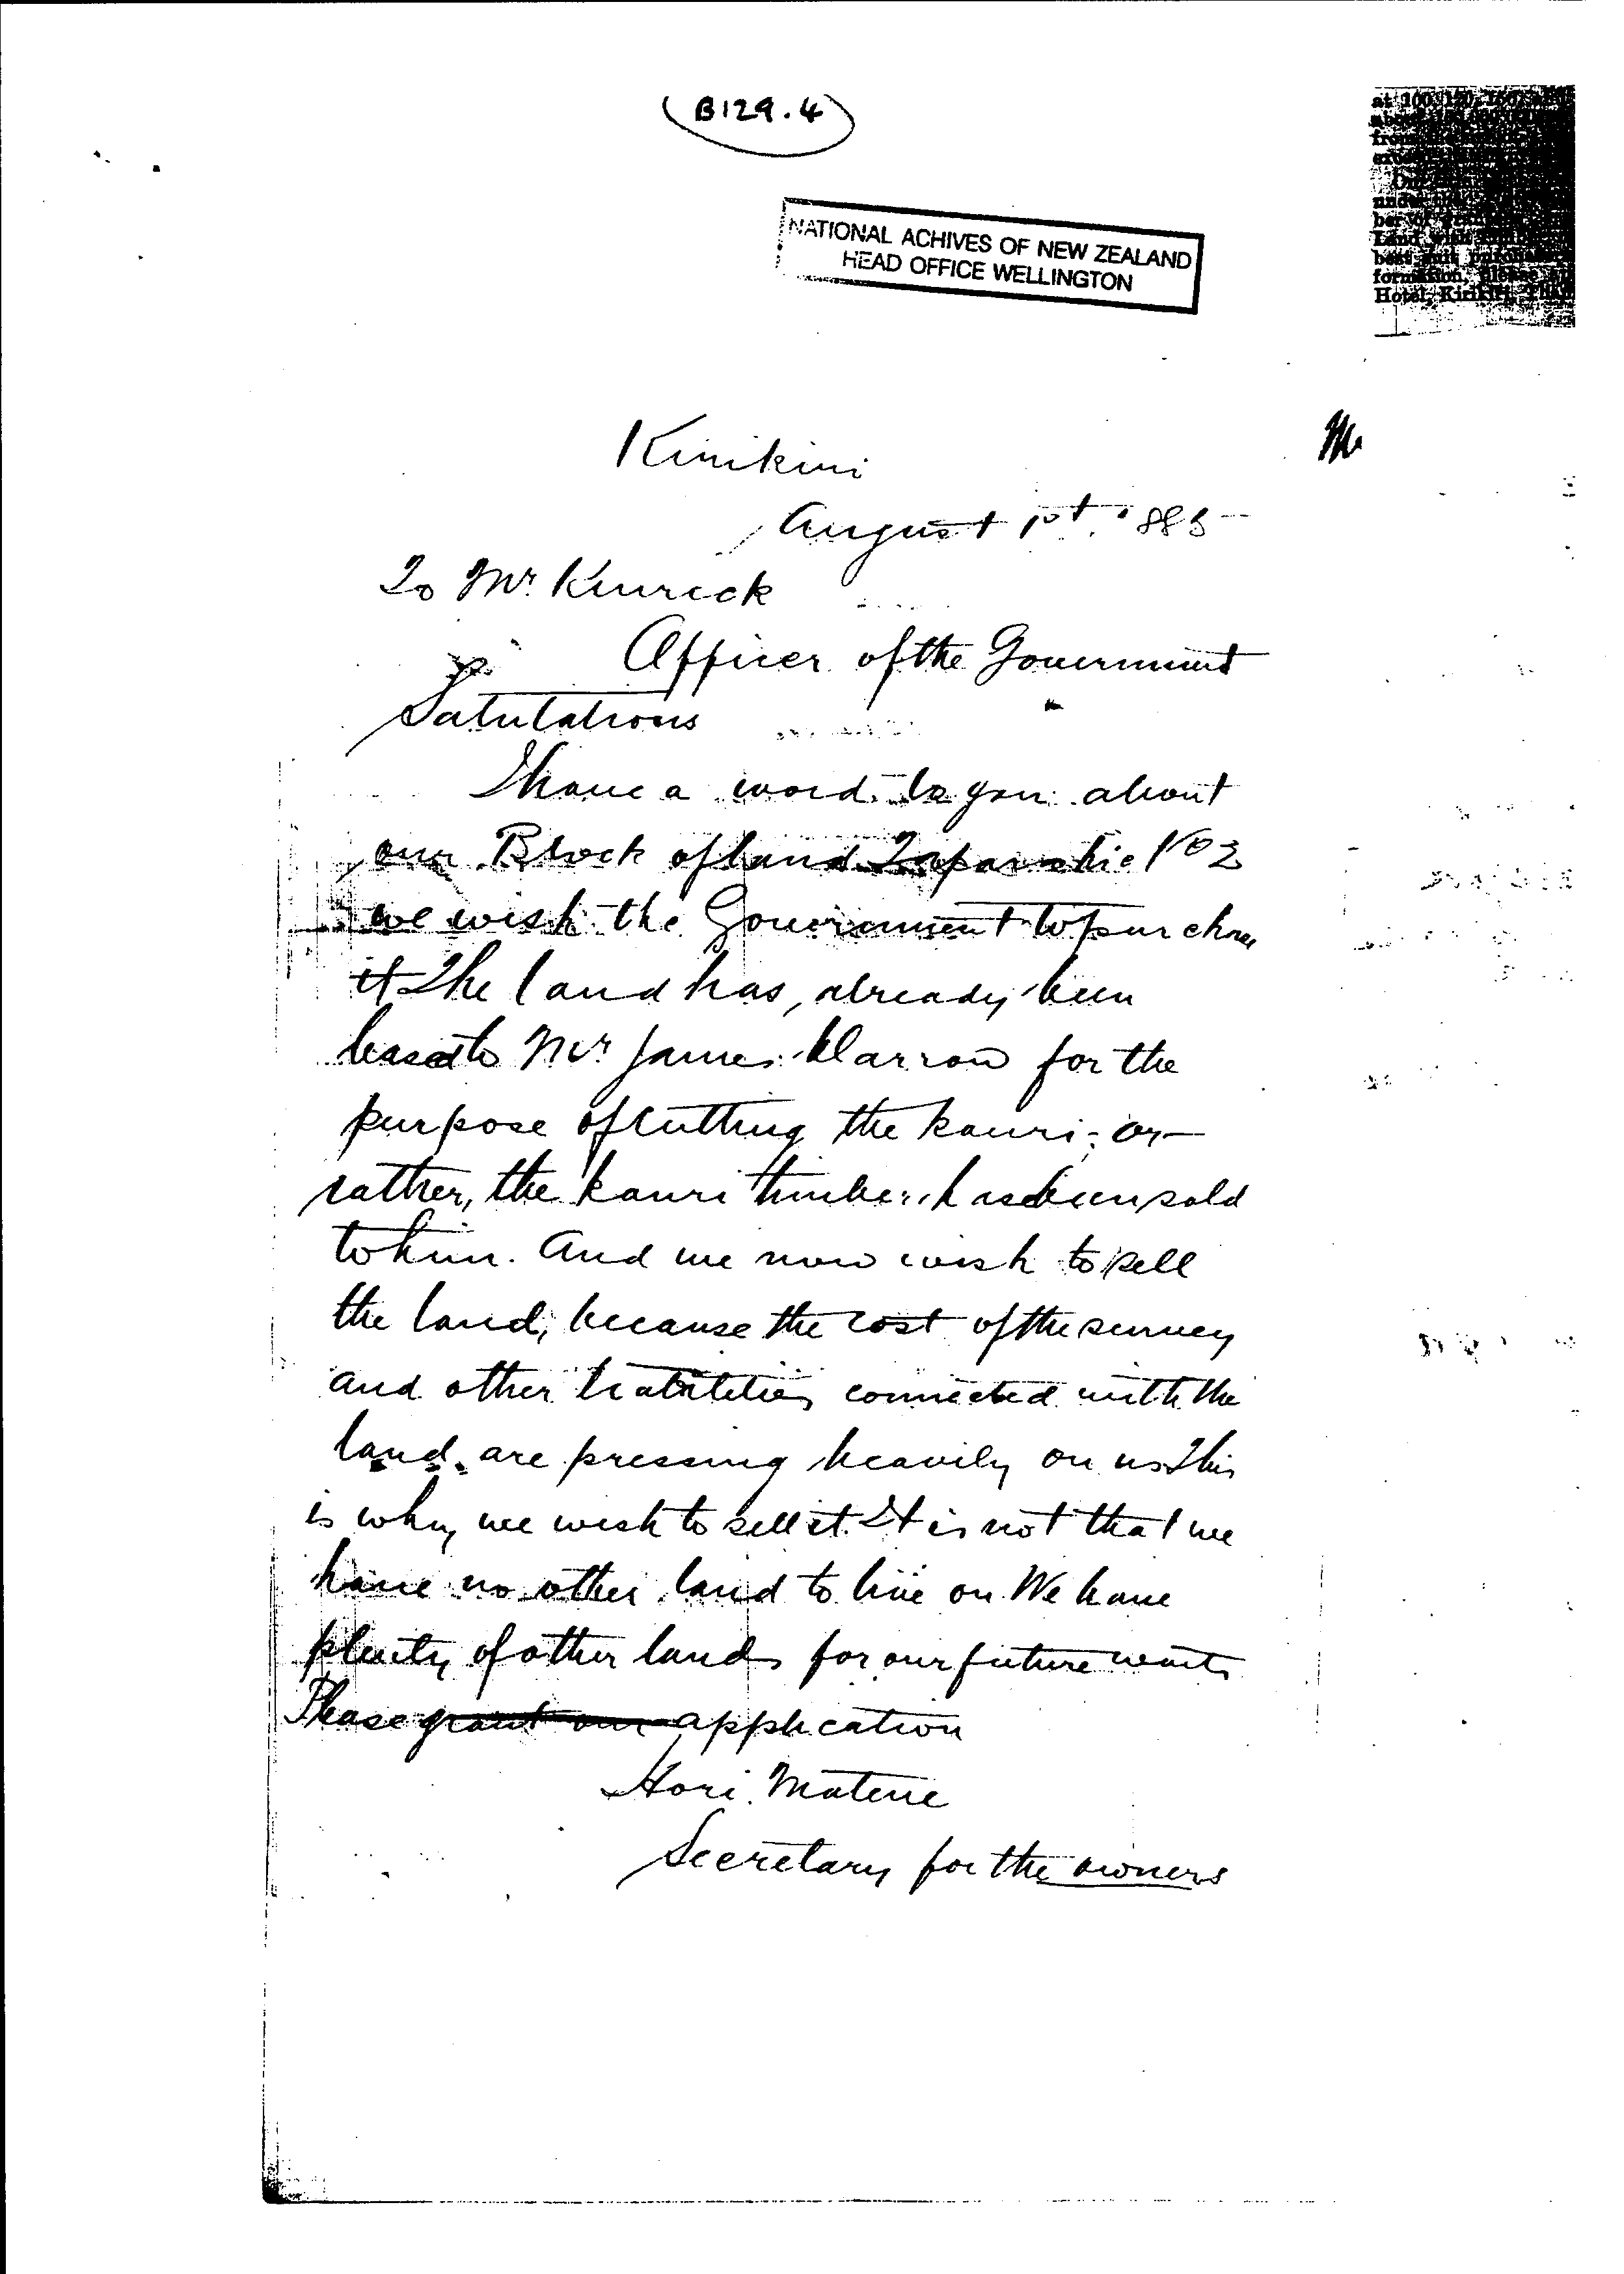 B129.4
NATIONAL ACHIVES OF NEW ZEALAND
HEAD OFFICE WELLINGTON
at 100, 120, 150
from
under
ber of
Land
best suit purchase
formation, please
Hotel, Kirikiri,
Kirikiri
August 1st 1885
To Mr. Kenrick
Officer of the Government
Salutations
I have a word to you about
our Block of land No 2
we wish the Government to purchase
it The land has, already been
leased to Mr James Darrow for the
purpose of cutting the kauri; or
rather, the kauri timber has been sold
to him. And we now wish to sell
the land, because the cost of the survey
and other liabilities connected with the
land are pressing heavily on us This
is why we wish to sell it. It is not that we
have no other land to live on We have
plenty of other lands for our future wants
Please grant our application
Hori Matene
Secretary for the owners